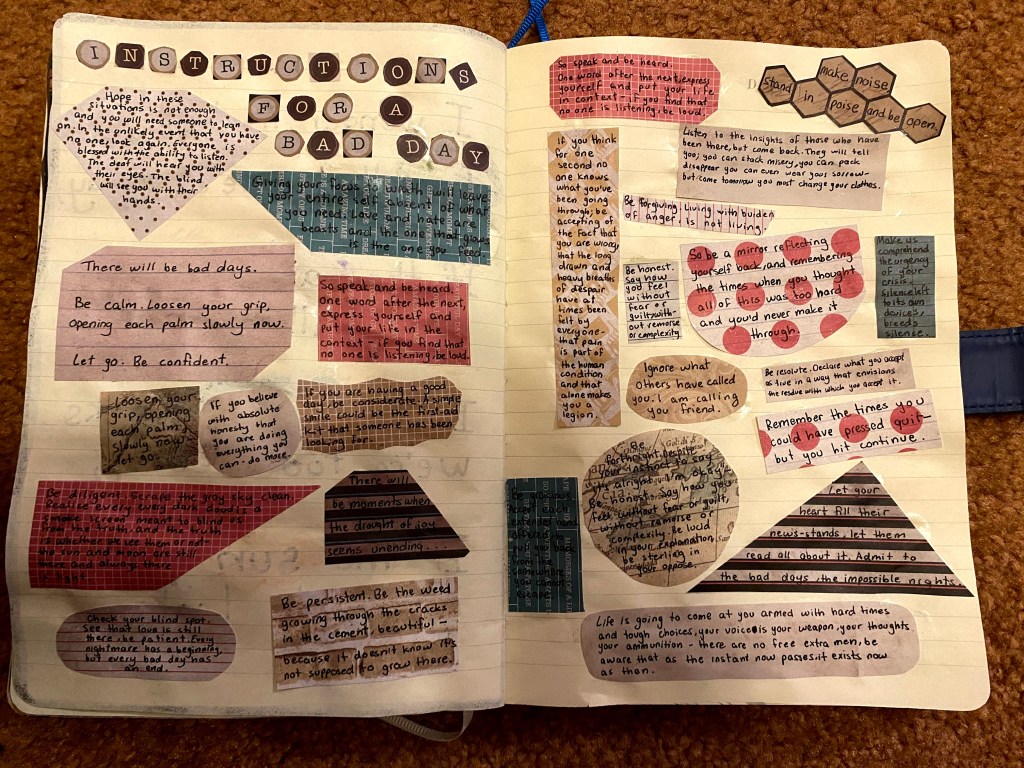 INSTRUCTIONS
FOR A
BAD DAY
Hope in these
situations is not enough
and you will need someone to lean
on. In the unlikely event that you have
no one, look again. Everyone is
blessed with the ability to listen.
The deaf will hear you with
their eyes. The blind
will see you with their
hands.
Giving your focus to wrath will leave
your entire self absent of what
you need. Love and hate are
beasts and the one that grows
is the one you feed.
There will be bad days.
Be calm. Loosen your grip,
opening each palm slowly now.
Let go. Be confident.
So speak and be heard,
one word after the next,
express yourself and
put your life in the
context - if you find that
no one is listening, be loud.
Loosen your
grip, opening
each palm
slowly now
let go.
If you believe
with absolute
honesty that
you are doing
everything you
can - do more.
If you are having a good
day, be considerate. A simple
smile could be the first-aid
kit that someone has been
looking for.
Be diligent. Scrape the gray sky clean.
Realize every dark cloud is a
smoke screen meant to blind us
from the truth and the truth
is whether we see them or not-
the sun and moon are still
there and always there
is light.
There will
be moments when
the drought of joy
seems unending...
Check your blind spot.
See that love is still
there, be patient. Every
nightmare has a beginning,
but every bad day has
an end.
Be persistent. Be the weed
growing through the cracks
in the cement, beautiful -
because it doesn't know it's
not supposed to grow there.
So speak and be heard.
One word after the next, express
yourself and put your life
in context - if you find that
no one is listening, be loud.
make noise
stand in poise and be open.
Listen to the insights of those who have
been there, but come back. They will tell
you; you can stack misery, you can pack
disappear you can even wear your sorrow-
but come tomorrow you must change your clothes.
If you think
for one
second no
one knows
what you've
been going
through; be
accepting of
the fact that
you are wrong,
that the long
drawn and
heavy breaths
of despair
have at
times been
felt by
everyone-
that pain
is part of
the human
condition
and that
alone makes
you a
legion.
Be forgiving; living with burden
of anger, is not living.
Be honest.
say how
you feel
without
fear or
guilt, with-
out remorse
or complexity.
So be a mirror reflecting
yourself back, and remembering
the times when you thought
all of this was too hard
and you'd never make it
through.
Make us
comprehend
the urgency
of your
crisis,
silence left
to its own
devices,
breeds
silence.
Ignore what
others have called
you. I am calling
you friend.
Be resolute. Declare what you accept
as live in a way that envisions
the resolve with which you accept it.
Remember the times you
could have pressed quit-
but you hit continue.
Be
forthright. Despite
your instinct to say
it's alright, I'm okay-
be honest. Say how you
feel without fear or guilt,
without remorse or
complexity. Be lucid
in your explanation,
be sterling in
your oppose.
Let your
heart fill their
news-stands, let them
read all about it. Admit to
the bad days, the impossible nights.
Life is going to come at you armed with hard times
and tough choices, your voice is your weapon, your thoughts
your ammunition - there are no free extra men, be
aware that as the instant now passes, it exists now
as then.